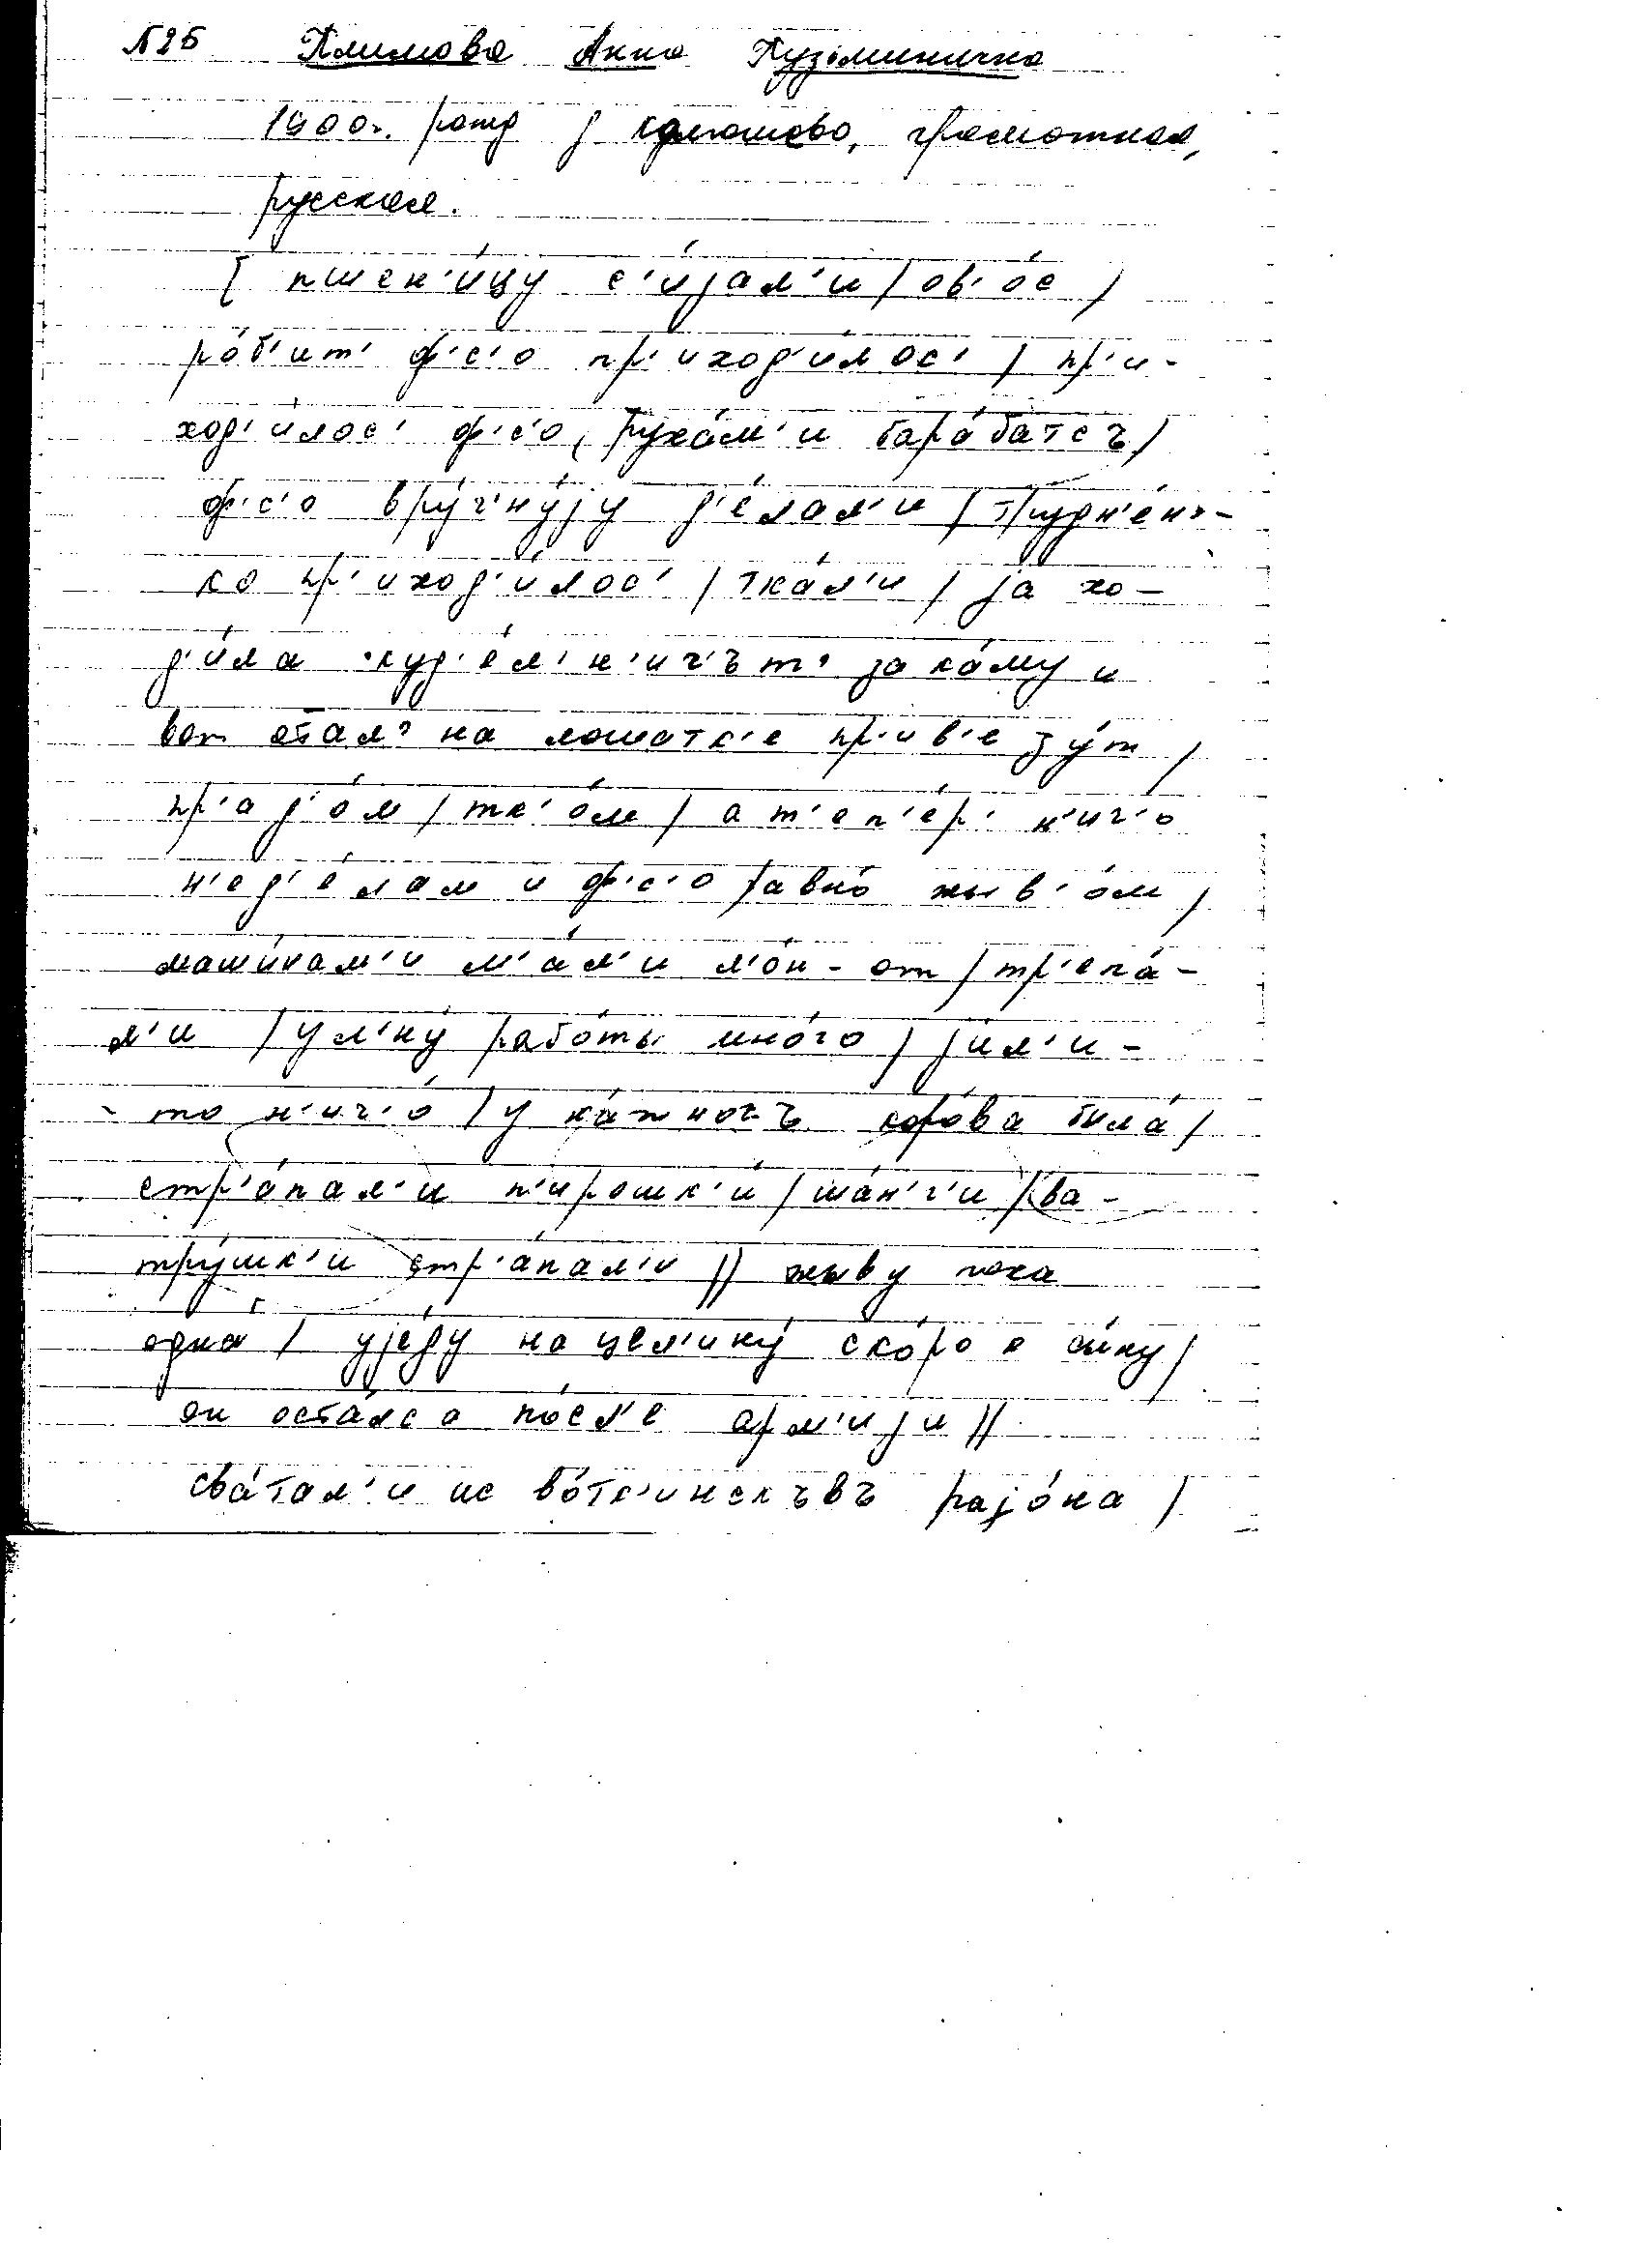 №25 Климова Анна Кузьминична
1900г. рожд д камешево, грамотная,
русская.
[ пшен'и́цу с'и́јал'и / ов'о́с /
ро́б'ит' ф'с'о пр'иход'и́лос' / пр'и-
ход'и́лос' ф'с'о, рука́м'и бара́батсъ /
ф'с'о вру́ч'ну́ју д'е́лал'и / трудн'е́н'-
ко пр'иход'и́лос' / тка́л'и / ја хо-
д'и́ла куд'е́л'н'ич'ът' за ка́му и
вот на лошатк'е пр'ив'езу́т /
пр'ад'о́м / тк'о́м / а т'еп'е́р' н'ич'о
н'ед'е́лам и ф'с'о равно́ жыв'о́м /
маши́нам'и м'а́л'и л'о́н-от / тр'епа́-
л'и / у л'ну́ рабо́ты мно́го / ји́л'и-
-то н'ич'о́ / у ка́жногъ коро́ва была́ /
стр'а́пал'и п'ирошк'и́ / ша́н'г'и / ва-
тру́шк'и стр'а́пал'и // жыву пока
одна / ује́ду на цел'ину́ ско́ро к сы́ну /
он оста́лса по́сл'е арм'иjи //
сва́тал'и ис во́тк'инскъвъ рајо́на /